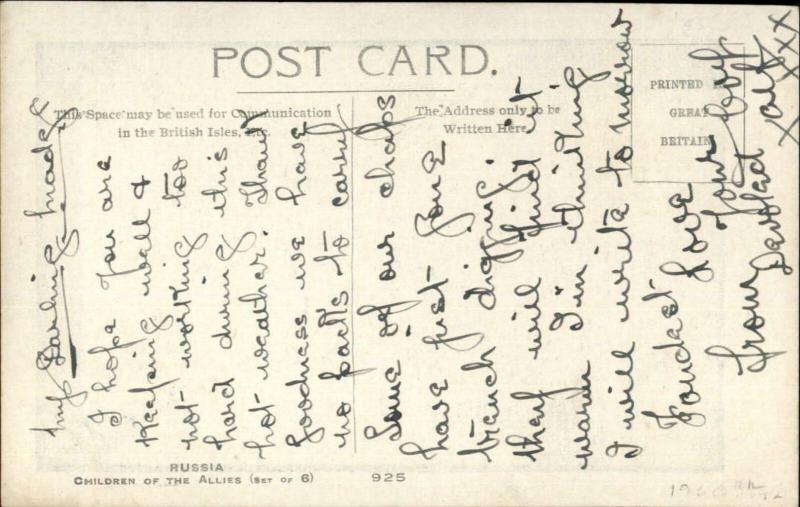 POST CARD.
This Space may be used for Communication
in the British Isles, Etc.
The Address only to be
Written Here.
PRINTED IN
GREAT
BRITAIN
My Darling Madge
I hope you are
keeping well &
not working too
hard during this
hot weather. Thank
goodness we have
no packs to carry
Some of our chaps
have just gone
trench digging.
they will find it
warm I'm thinking
I will write to morrow
Fondest Love
from Your Boy
Devoted Alf
XXX
X
RUSSIA
CHILDREN OF THE ALLIES (SET OF 6)
925